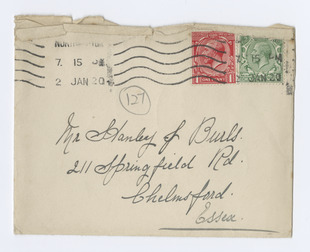 7. 15 PM
2 JAN 20
127
15
JAN 20
Mr Stanley J Burls.
211 Springfield Rd.
Chelmsford.
Essex.